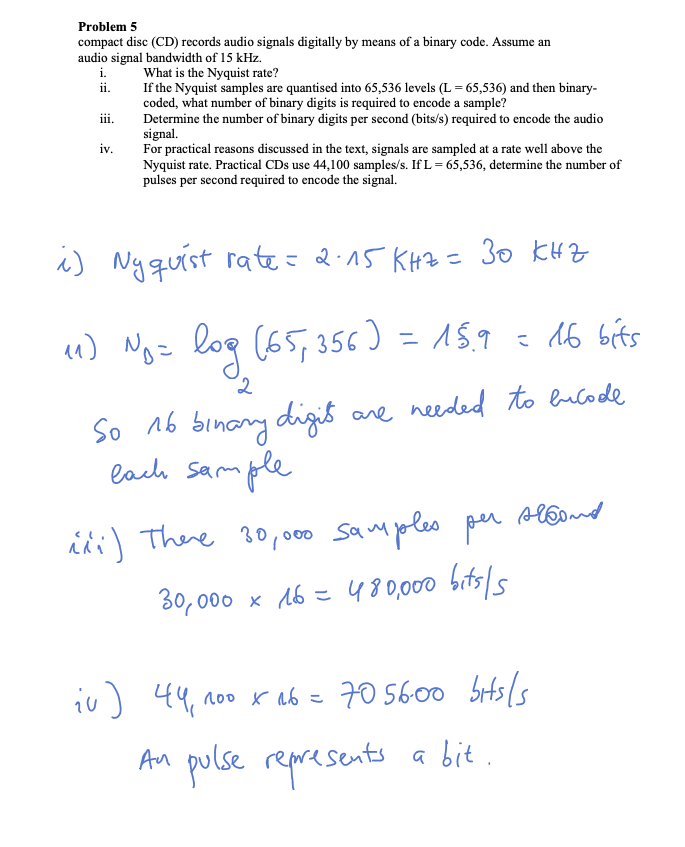 Problem 5
compact disc (CD) records audio signals digitally by means of a binary code. Assume an
audio signal bandwidth of 15 kHz.
i. What is the Nyquist rate?
ii. If the Nyquist samples are quantised into 65,536 levels (L = 65,536) and then binary-
coded, what number of binary digits is required to encode a sample?
iii. Determine the number of binary digits per second (bits/s) required to encode the audio
signal.
iv. For practical reasons discussed in the text, signals are sampled at a rate well above the
Nyquist rate. Practical CDs use 44,100 samples/s. If L = 65,536, determine the number of
pulses per second required to encode the signal.
i) Nyquist rate = 2·15 KHz = 30 KHz
ii) N_D = log_2 (65,356) = 15.9 = 16 bits
So 16 binary digit are needed to encode
each sample
iii) There 30,000 samples per second
30,000 x 16 = 480,000 bits/s
iv) 44,100 x 16 = 705600 bits/s
An pulse represents a bit.